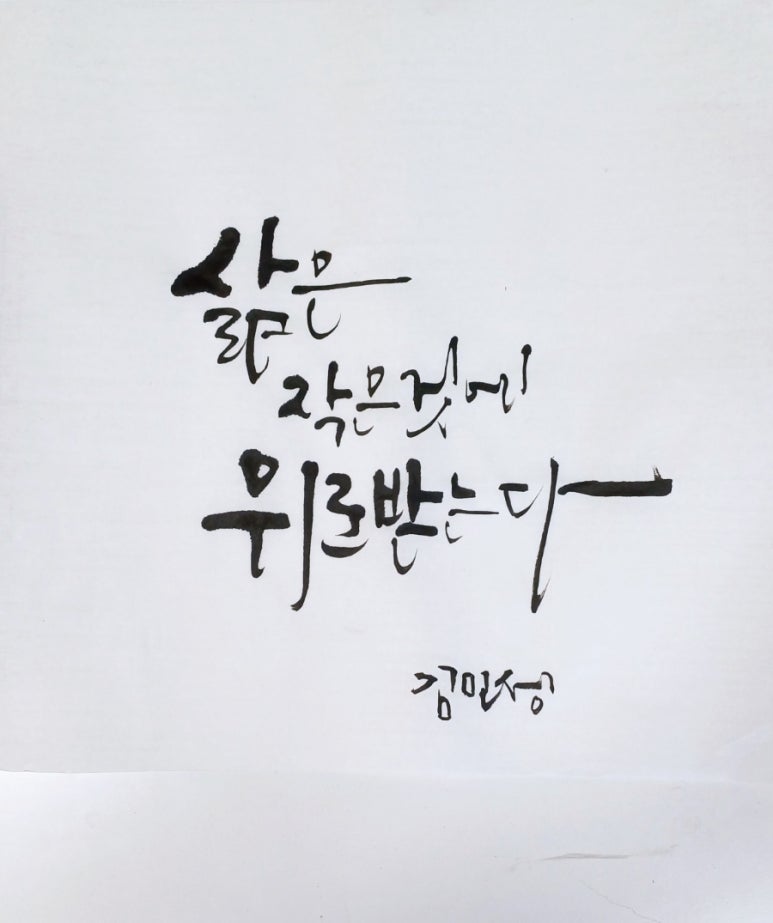 삶은
작은것에
위로받는다
김민성